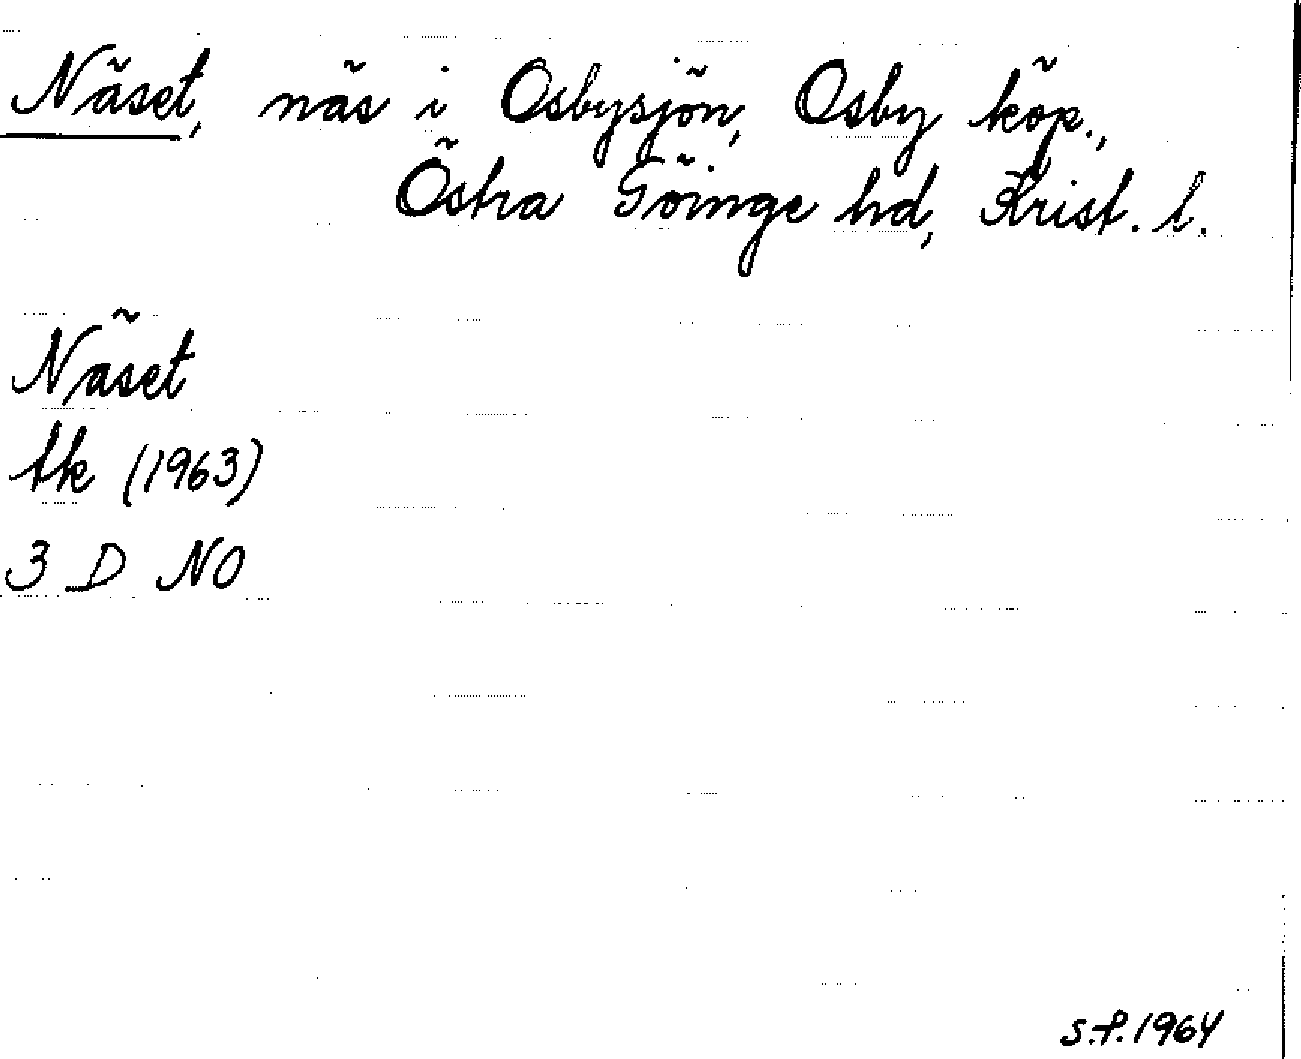 Näset, näs i Osbysjön, Osby köp.,
Östra Göinge hd, Krist. l.
Näset
tk (1963)
3 D NO
S.F. 1964